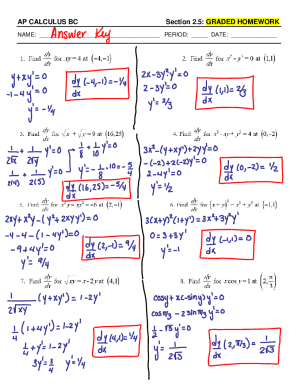 AP CALCULUS BC Section 2.5: GRADED HOMEWORK
NAME: Answer Key PERIOD: DATE:
1. Find dy/dx for xy = 4 at (-4,-1)
y + xy' = 0
-1 - 4y' = 0
y' = -1/4
dy/dx (-4,-1) = -1/4
2. Find dy/dx for x² - y³ = 0 at (1,1)
2x - 3y²y' = 0
2 - 3y' = 0
y' = 2/3
dy/dx (1,1) = 2/3
3. Find dy/dx for √x + √y = 9 at (16,25)
1/(2√x) + 1/(2√y) y' = 0
1/(2(4)) + 1/(2(5)) y' = 0
1/8 + 1/10 y' = 0
y' = -1/8 · 10 = -5/4
dy/dx (16,25) = -5/4
4. Find dy/dx for x³ - xy + y² = 4 at (0,-2)
3x² - (y + xy') + 2yy' = 0
-(-2) + 2(-2)y' = 0
2 - 4y' = 0
y' = 1/2
dy/dx (0,-2) = 1/2
5. Find dy/dx for x²y - xy² = -6 at (2,-1)
2xy + x²y' - (y² + 2xyy') = 0
-4 - 4 - (1 - 4y') = 0
-9 + 4y' = 0
y' = 9/4
dy/dx (2,-1) = 9/4
6. Find dy/dx for (x + y)³ = x³ + y³ at (-1,1)
3(x+y)²(1+y') = 3x² + 3y²y'
0 = 3 + 3y'
y' = -1
dy/dx (-1,1) = -1
7. Find dy/dx for √xy = x - 2y at (4,1)
1/(2√xy) (y + xy') = 1 - 2y'
1/4 (1 + 4y') = 1 - 2y'
1/4 + y' = 1 - 2y'
3y' = 3/4 y' = 1/4
dy/dx (4,1) = 1/4
8. Find dy/dx for x cos y = 1 at (2, π/3)
cos y + x(-sin y)y' = 0
cos π/3 - 2 sin π/3 y' = 0
1/2 - √3 y' = 0
y' = 1/(2√3)
dy/dx (2, π/3) = 1/(2√3)